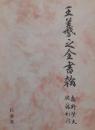 王羲之全書翰
森野繁夫
佐藤利行
白帝社